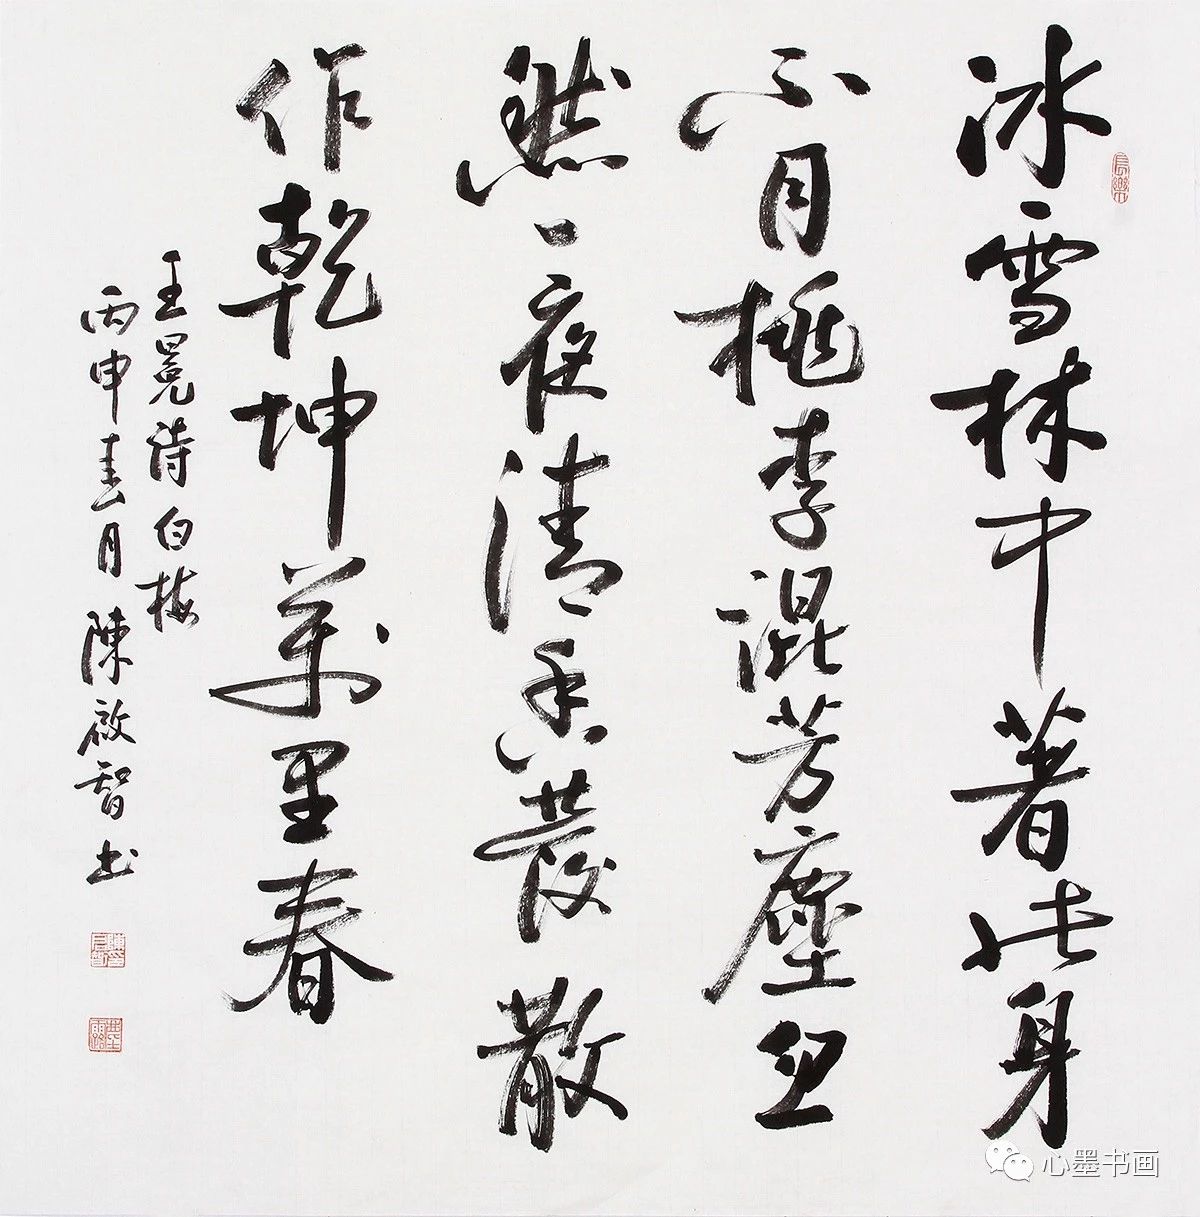 冰雪林中著此身
不同桃李混芳塵忽
然一夜清香發散
作乾坤萬里春
王冕詩白梅
丙申春月陳啟智书
心墨书画